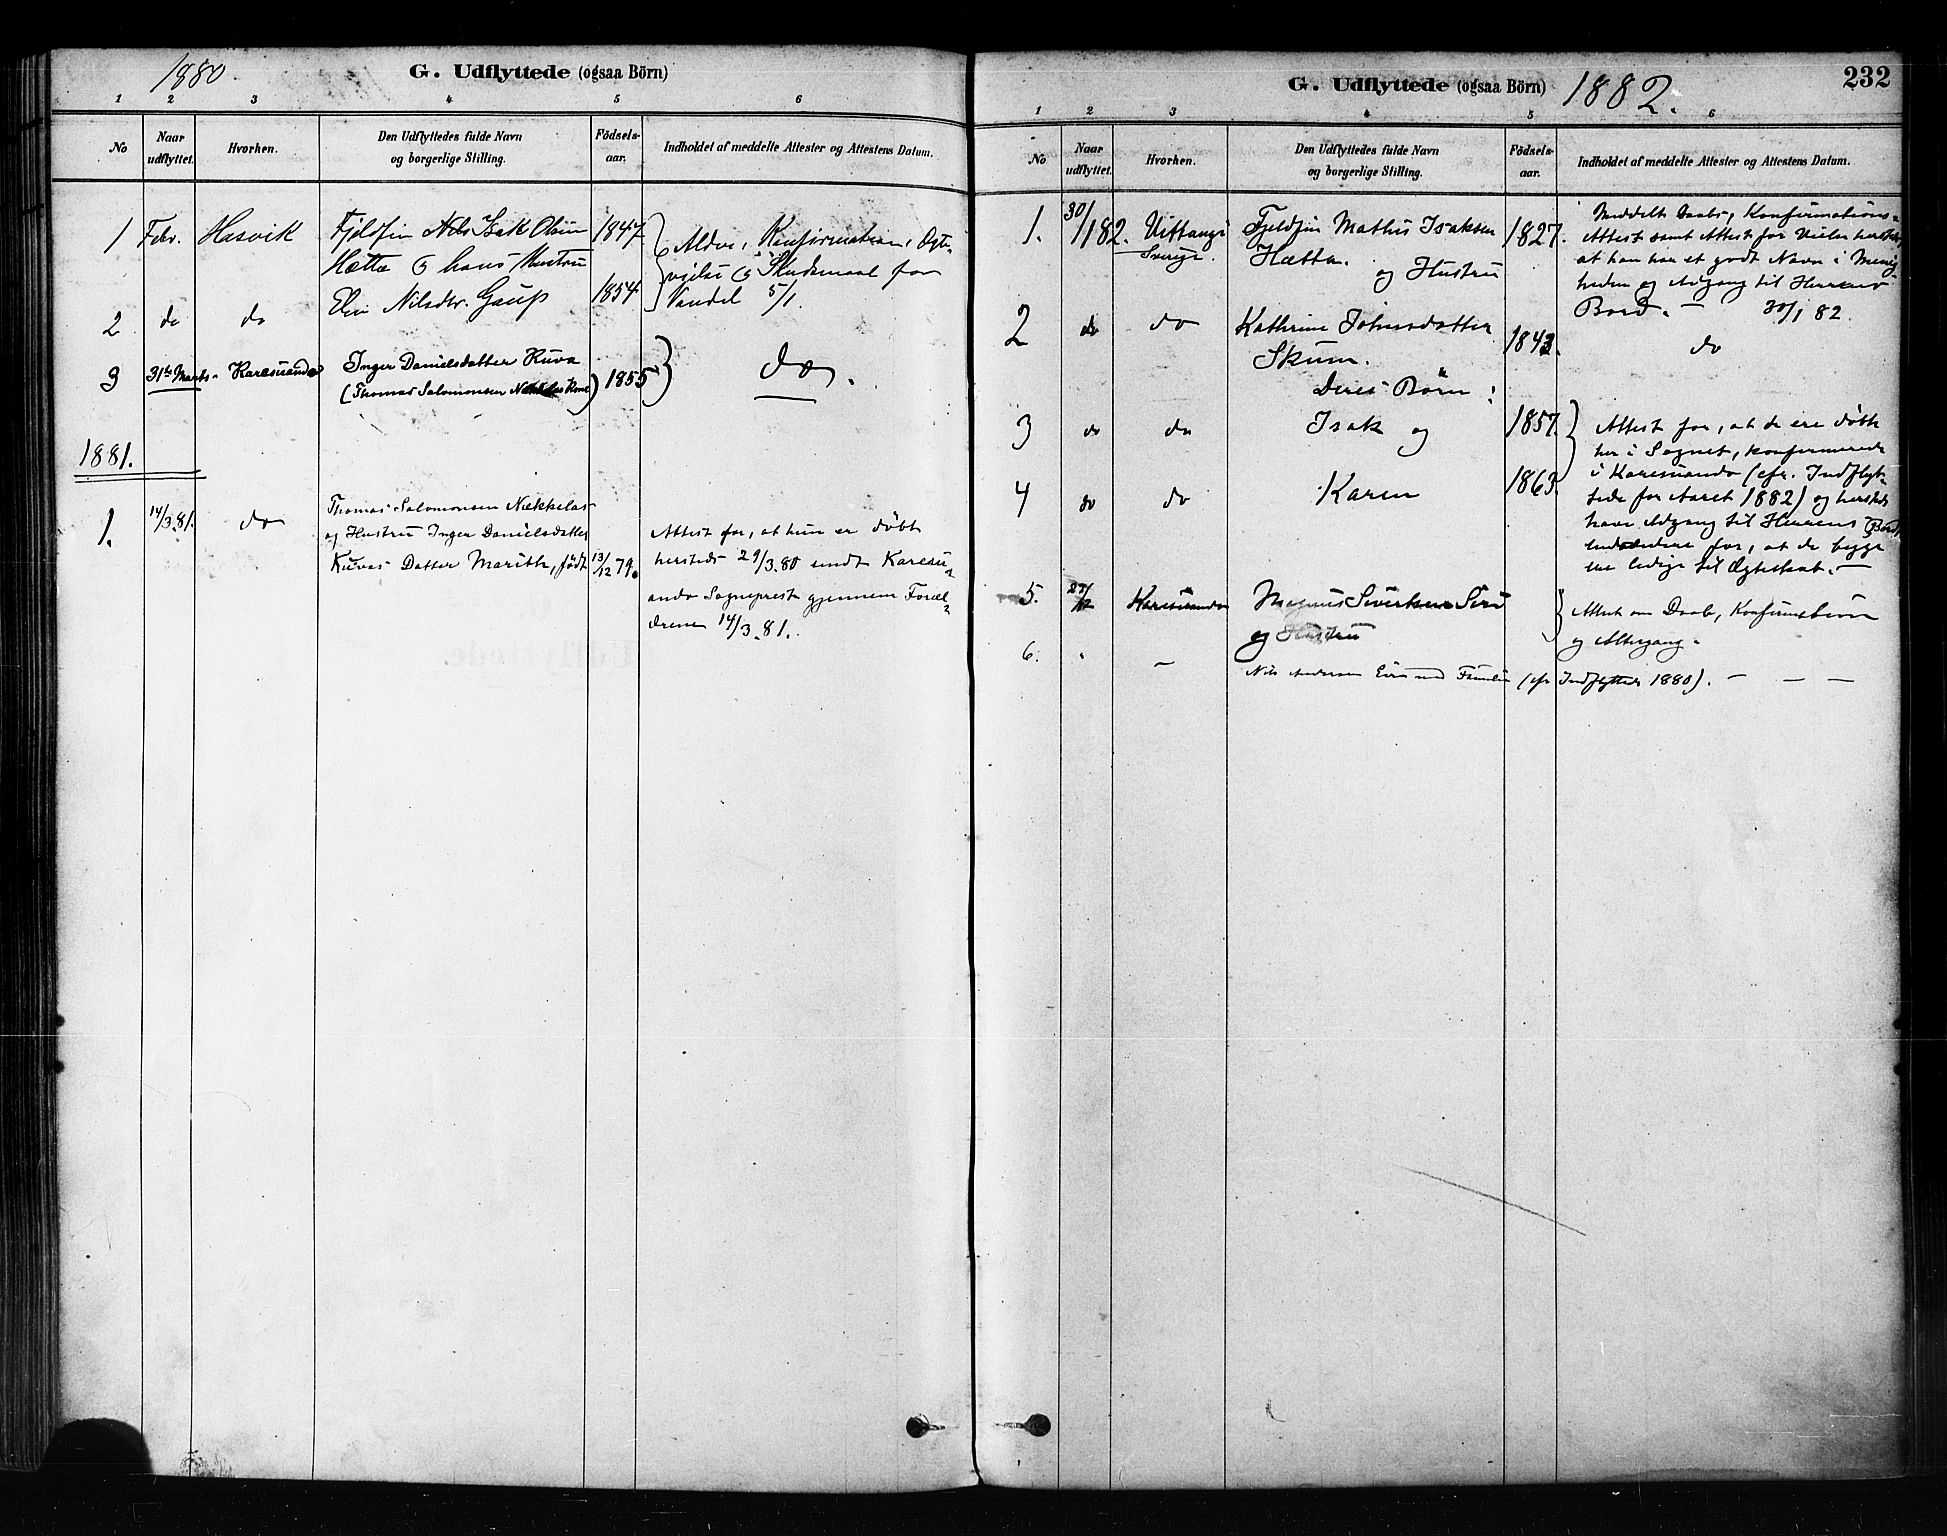 1880
G. Udflyttede (ogsaa Börn)
1 2 3 4 5 6
No
Naar udflyttet.
Hvorhen.
Den Udflyttedes fulde Navn
og borgerlige Stilling.
Födsels-
aar.
Indholdet af meddelte Attester og Attestens Datum.
1 Febr. Hasvik Fjeldfin Nils Isak Olsen 1847
Hætta & hans Hustru
2 do do Elen Nilsdtr. Gaup 1854
Konfirmations,
vielse & Skudsmaal for
Vandel 5/1
3 31te Marts Karesuando Inger Danielsdatter Kuva
(Thomas Salomonsen Kone) 1855 do.
1881.
1. 14/3.81. do Thomas Salomonsen Nækkelas
og Hustru Inger Danielsdatter
Kuvas Datter Marith, født 13/12 79.
Attest for, at hun er døbt
hersteds 29/3.80 sendt Karesu-
ando Sogneprest gjennem Foræl-
drene 14/3.81.
G. Udflyttede (ogsaa Börn) 1882. 232
1 2 3 4 5 6
No
Naar udflyttet.
Hvorhen.
Den Udflyttedes fulde Navn
og borgerlige Stilling.
Födsels-
aar.
Indholdet af meddelte Attester og Attestens Datum.
1. 30/1 82. Vittangi Fjeldfin Mathis Isaksen 1827.
Sverige. Hætta. og Hustru
Meddelt Daabs, Konfirmations-
Attest samt Attest for
at han har et godt Navn i Menig-
heden og Adgang til Herrens
Bord. — 30/1 82.
2 do do Kathrine Johnsdatter
Skum. 1843. do
Deres Børn:
3 do do Isak og 1857.
4 do do Karen 1863.
Attest for, at de ere døbte
her i Sognet, konfirmerede
i Karesuando (cfr. Indflyt-
tede for Aaret 1882) og hersteds
have Adgang til Herrens Bord,
for, at de begge
ere ledige til Ægteskab. —
5. Karesuando Magnus Siri
og Hustru
Attest om Daab, Konfirmation
og Altergang.
6. — Nils Andersen Siri med Familie (cfr Indflyttede 1880). — — —